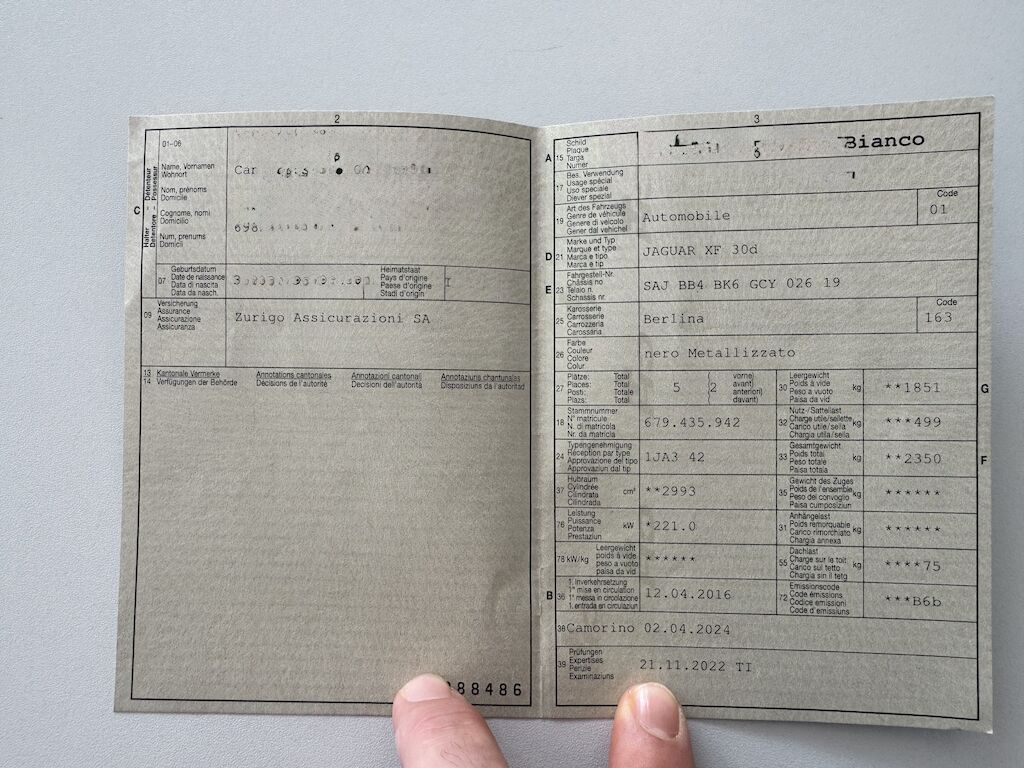 2
01-06
Name, Vornamen
Wohnort
Nom, prénoms
Domicile
Cognome, nomi
Domicilio
Num, prenums
Domicil
C
Halter – Détenteur
Detentore – Possessur
Car
698.
07
Geburtsdatum
Date de naissance
Data di nascita
Data da nasch.
Heimatstaat
Pays d'origine
Paese d'origine
Stadi d'origin
I
09
Versicherung
Assurance
Assicurazione
Assicuranza
Zurigo Assicurazioni SA
13 Kantonale Vermerke Annotations cantonales Annotazioni cantonali Annotaziuns chantunalas
14 Verfügungen der Behörde Décisions de l'autorité Decisioni dell'autorità Disposiziuns da l'autoritad
88486
3
A 15
Schild
Plaque
Targa
Numer
Bianco
17
Bes. Verwendung
Usage spécial
Uso speciale
Diever spezial
19
Art des Fahrzeugs
Genre de véhicule
Genere di veicolo
Gener dal vichel
Automobile
Code
01
D 21
Marke und Typ
Marque et type
Marca e tipo
Marca e tip
JAGUAR XF 30d
E 23
Fahrgestell-Nr.
Châssis no
Telaio n.
Schassis nr.
SAJ BB4 BK6 GCY 026 19
25
Karosserie
Carrosserie
Carrozzeria
Carossaria
Berlina
Code
163
26
Farbe
Couleur
Colore
Colur
nero Metallizzato
27
Plätze: Total
Places: Total
Posti: Totale
Plazs: Total
5 (2
vorne)
avant)
anteriori)
davant)
30
Leergewicht
Poids à vide
Peso a vuoto
Paisa da vid
kg
**1851
G
18
Stammnummer
N° matricule
N. di matricola
Nr. da matricla
679.435.942
32
Nutz-/Sattellast
Charge utile/sellette
Carico utile/sella
Chargia utila/sella
kg
***499
24
Typengenehmigung
Réception par type
Approvazione del tipo
Approvaziun dal tip
1JA3 42
33
Gesamtgewicht
Poids total
Peso totale
Paisa totala
kg
**2350
F
37
Hubraum
Cylindrée
Cilindrata
Cilindrada
cm³
**2993
35
Gewicht des Zuges
Poids de l'ensemble
Peso del convoglio
Paisa cumposiziun
kg
******
76
Leistung
Puissance
Potenza
Prestaziun
kW
*221.0
31
Anhängelast
Poids remorquable
Carico rimorchiato
Chargia annexa
kg
******
78 kW/kg
Leergewicht
poids à vide
peso a vuoto
paisa da vid
******
55
Dachlast
Charge sur le toit
Carico sul tetto
Chargia sin il tetg
kg
****75
B 36
1. Inverkehrsetzung
1re mise en circulation
1a messa in circolazione
1. entrada en circulaziun
12.04.2016
72
Emissionscode
Code émissions
Codice emissioni
Code d'emissiuns
***B6b
38 Camorino 02.04.2024
39
Prüfungen
Expertises
Perizie
Examinaziuns
21.11.2022 TI